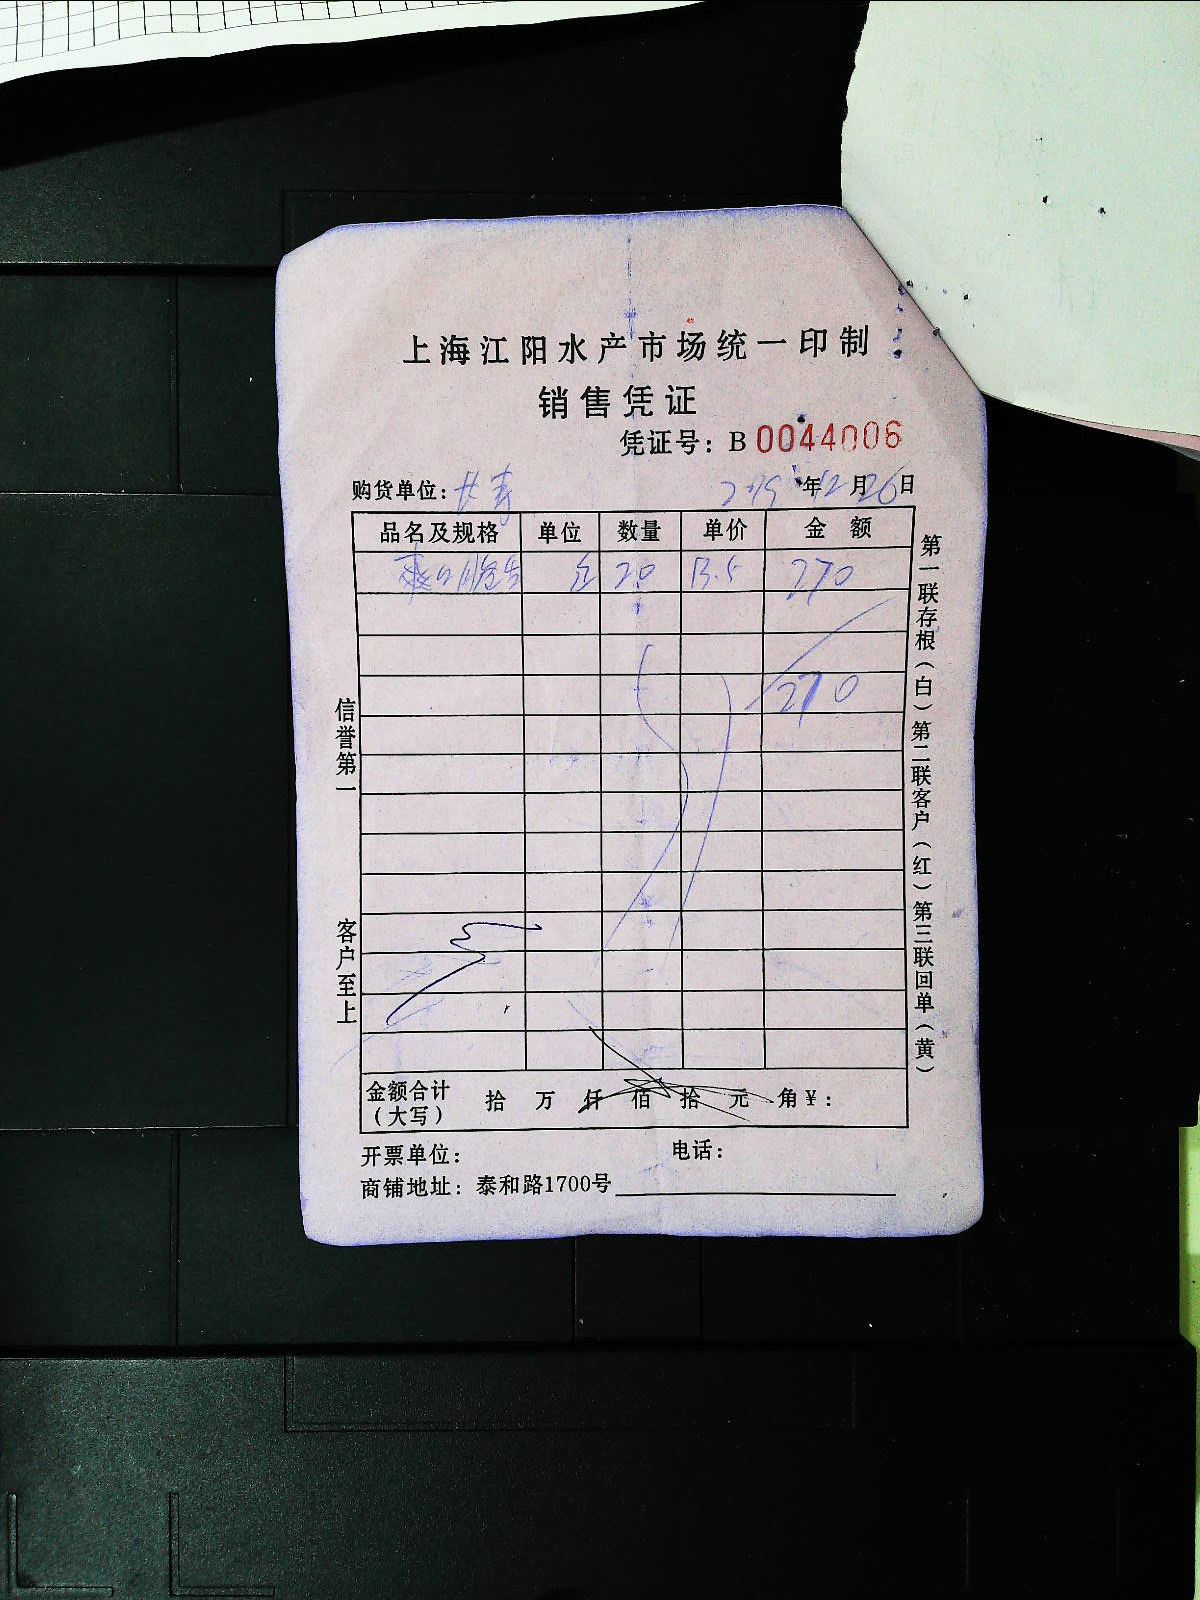 上海江阳水产市场统一印制
销售凭证
凭证号：B 0044006
购货单位： 年12月26日
品名及规格 单位 数量 单价 金额
20 13.5 270
270
金额合计（大写） 拾 万 仟 佰 拾 元 角 ¥：
开票单位： 电话：
商铺地址：泰和路1700号
信誉第一 客户至上
第一联存根（白）第二联客户（红）第三联回单（黄）